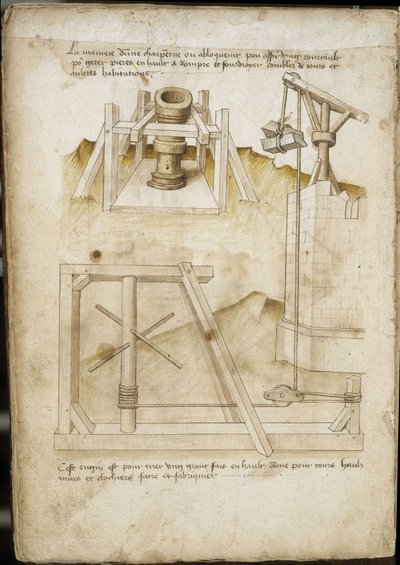 La maniere dune charpetrie ou abloquemt pou assir dung courtault
po geter pieres en hault a Rompre et fourdroier combles de tours et
aultres habitations
Cest engin est pour tirer ung grant fais en hault cōme pour tours haulx
murs et clochiers faire et fabriquer